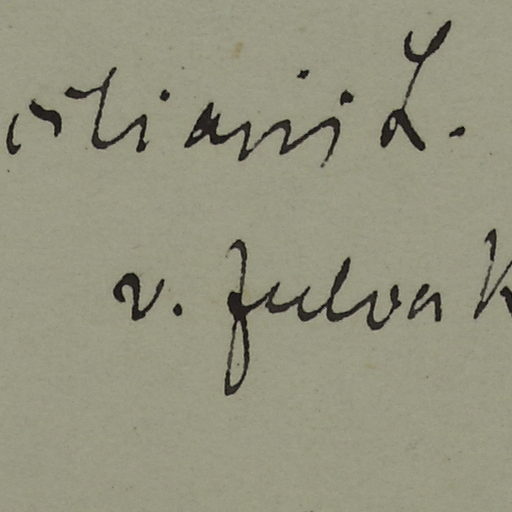 stianii L.
v. fulva K